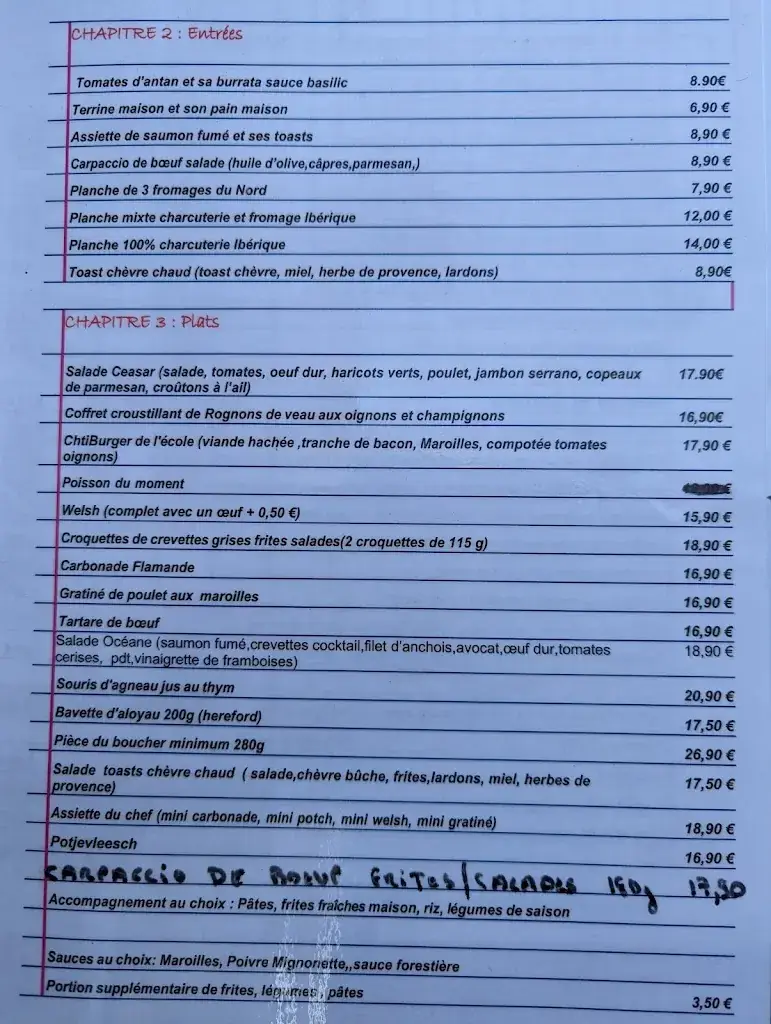 CHAPITRE 2 : Entrées
Tomates d'antan et sa burrata sauce basilic 8.90€
Terrine maison et son pain maison 6,90 €
Assiette de saumon fumé et ses toasts 8,90 €
Carpaccio de bœuf salade (huile d'olive,câpres,parmesan,) 8,90 €
Planche de 3 fromages du Nord 7,90 €
Planche mixte charcuterie et fromage Ibérique 12,00 €
Planche 100% charcuterie Ibérique 14,00 €
Toast chèvre chaud (toast chèvre, miel, herbe de provence, lardons) 8,90€
CHAPITRE 3 : Plats
Salade Ceasar (salade, tomates, oeuf dur, haricots verts, poulet, jambon serrano, copeaux 17.90€
de parmesan, croûtons à l'ail)
Coffret croustillant de Rognons de veau aux oignons et champignons 16,90€
ChtiBurger de l'école (viande hachée ,tranche de bacon, Maroilles, compotée tomates 17,90 €
oignons)
Poisson du moment €
Welsh (complet avec un œuf + 0,50 €) 15,90 €
Croquettes de crevettes grises frites salades(2 croquettes de 115 g) 18,90 €
Carbonade Flamande 16,90 €
Gratiné de poulet aux maroilles 16,90 €
Tartare de bœuf 16,90 €
Salade Océane (saumon fumé,crevettes cocktail,filet d'anchois,avocat,œuf dur,tomates 18,90 €
cerises, pdt,vinaigrette de framboises)
Souris d'agneau jus au thym 20,90 €
Bavette d'aloyau 200g (hereford) 17,50 €
Pièce du boucher minimum 280g 26,90 €
Salade toasts chèvre chaud ( salade,chèvre bûche, frites,lardons, miel, herbes de 17,50 €
provence)
Assiette du chef (mini carbonade, mini potch, mini welsh, mini gratiné) 18,90 €
Potjevleesch 16,90 €
CARPACCIO DE BOEUF FRITES/SALADE 180g 17,90
Accompagnement au choix : Pâtes, frites fraîches maison, riz, légumes de saison
Sauces au choix: Maroilles, Poivre Mignonette,,sauce forestière
Portion supplémentaire de frites, légumes, pâtes 3,50 €